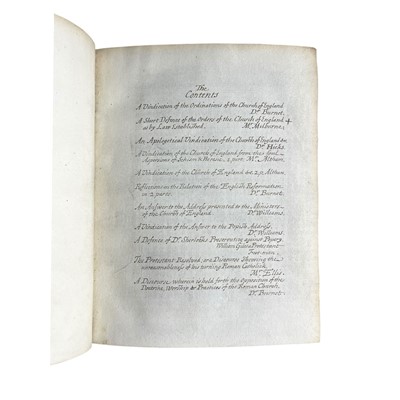 The
Contents
A Vindication of the Ordinations of the Church of England
Dr. Burnet.
A Short Defence of the Orders of the Church of England
as by Law Established. Mr. Milborne.
An Apologetical Vindication of the Church of England
Dr. Hicks.
A Vindication of the Church of England from the foul
Aspersions of Schism & Heresie, 2 part. Mr. Altham.
A Vindication of the Church of England 2 p. Altham
Reflections on the Relation of the English Reformation
in 2 parts. Dr. Burnet.
An Answer to the Address presented to the Ministers
of the Church of England Dr. Williams.
A Vindication of the Answer to the Popish Address.
Dr. Williams.
A Defence of Dr. Sherlock's Preservative against Popery.
William Giles Protestant
The Protestant Resolved, or a Discourse Shewing the
unreasonableness of his turning Roman Catholick.
Mr. Ellis.
A Discourse, wherein is held forth the Opposition of the
Doctrine, Worship & Practices of the Roman Church.
Dr. Burnet.